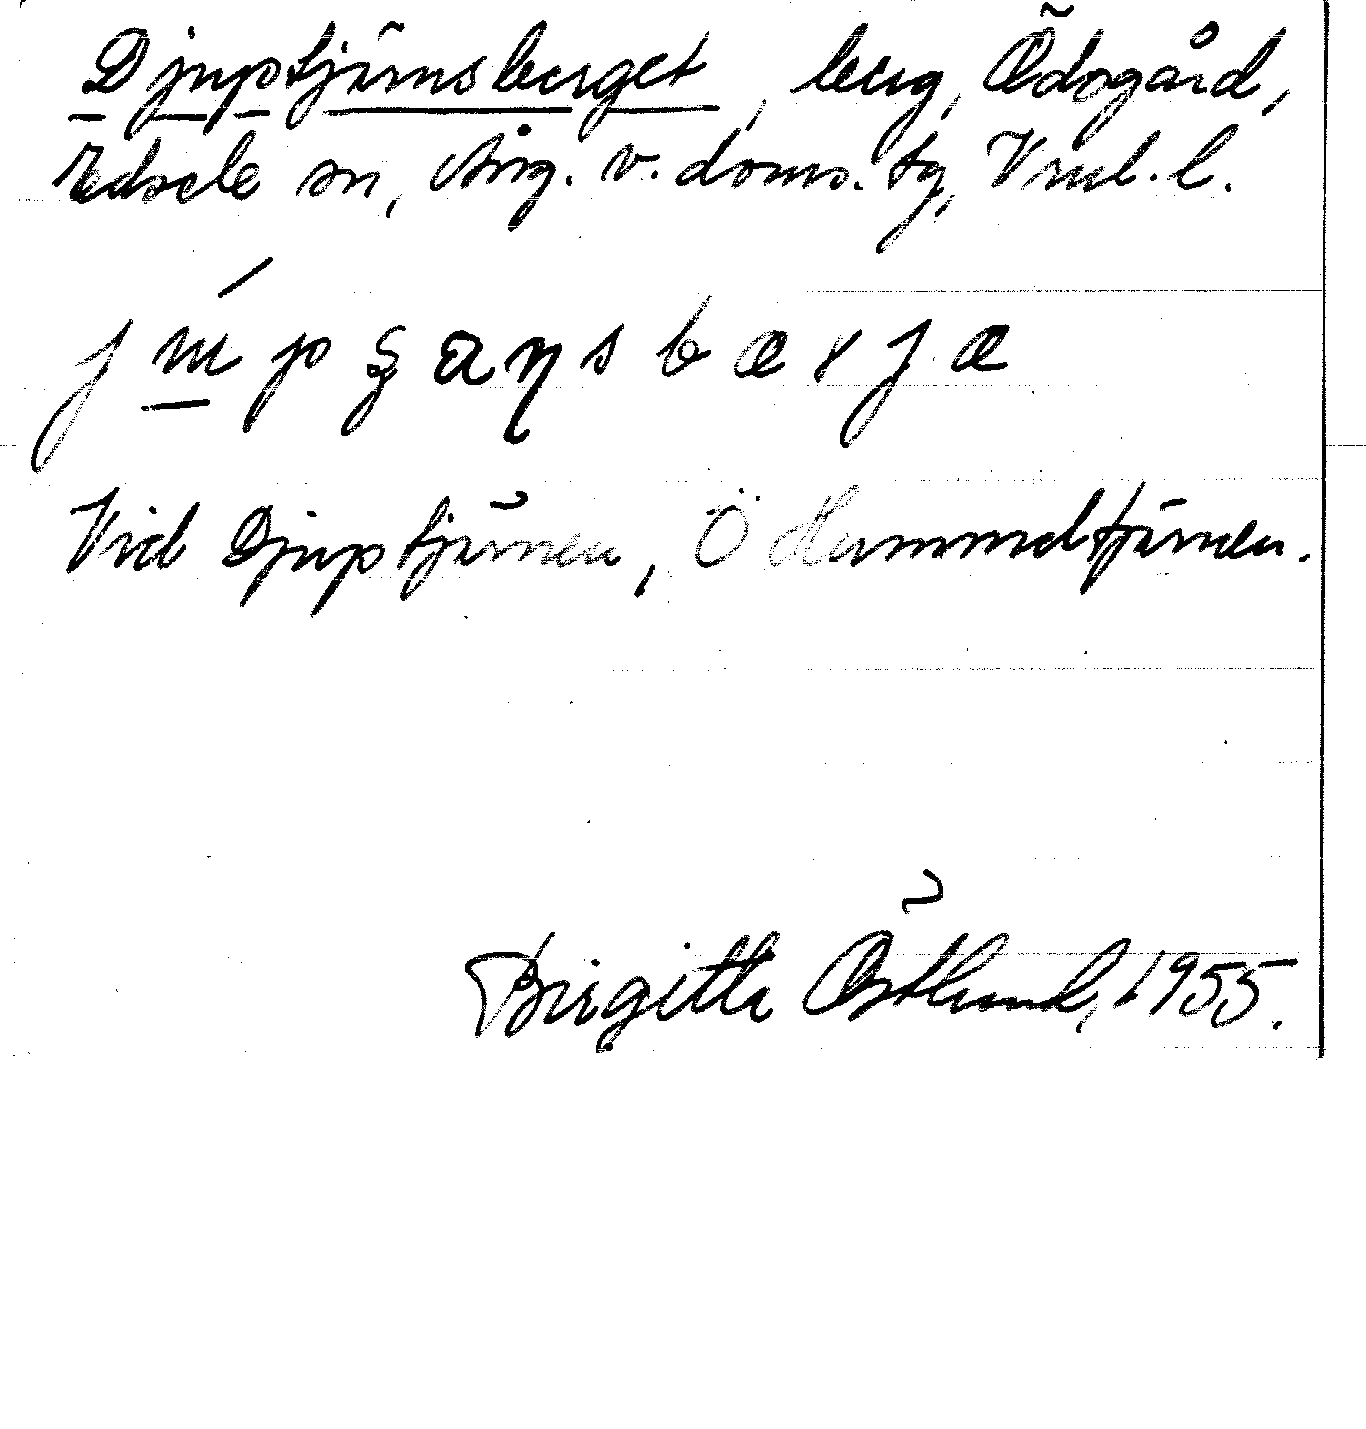 Djuptjärnsberget, berg, Ödsgård,
Edsele sn, Ång. v. doms. tg, Vnl. l.
Vid Djuptjärnen, Ö Hammeltjärnen.
Birgitta Östlund, 1955.